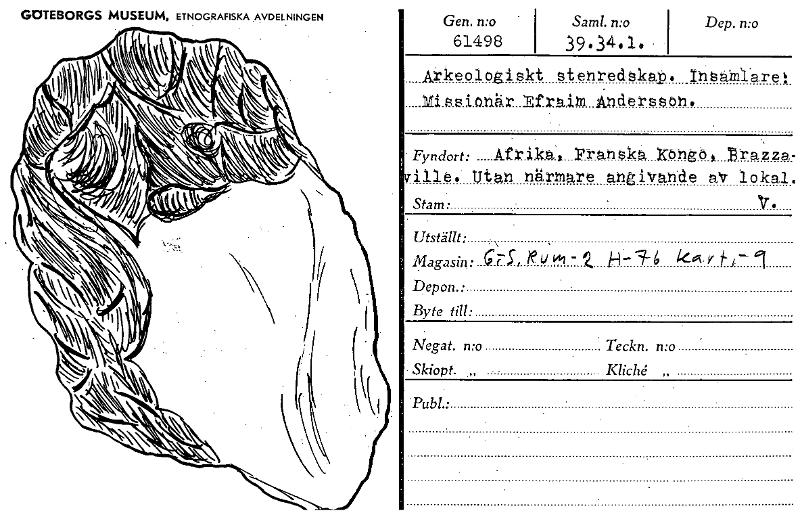 GÖTEBORGS MUSEUM, ETNOGRAFISKA AVDELNINGEN
Gen. n:o Saml. n:o Dep. n:o
61498 39.34.1.
Arkeologiskt stenredskap. Insamlare:
Missionär Efraim Andersson.
Fyndort: Afrika, Franska Kongo, Brazza-
ville. Utan närmare angivande av lokal.
Stam: V.
Utställt:
Magasin: G-S, Rum-2 H-76 Kart.-9
Depon.:
Byte till:
Negat. n:o Teckn. n:o
Skiopt. „ Kliché „
Publ.: